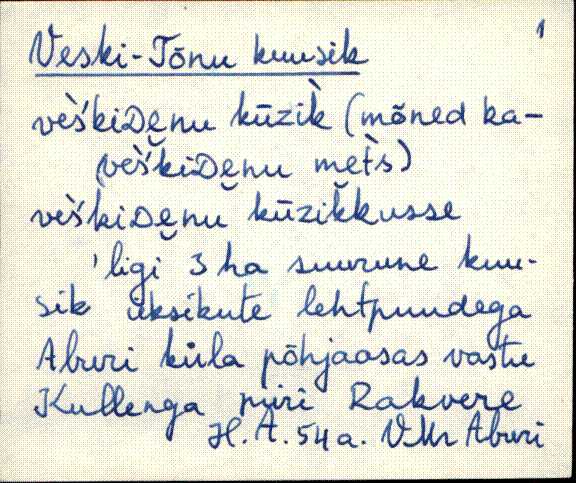 1
Veski-Tõnu kuusik
vèśkiDe̮nu kūzìk (mõned ka-
(vèśkiDe̮nu met̀s)
vèśkiDe̮nu kūzik̆kusse
'ligi 3 ha suurune kuu-
sik üksikute lehtpuudega
Aburi küla põhjaosas vastu
Kullenga piiri Rakvere
H.A. 54 a. VMr Aburi